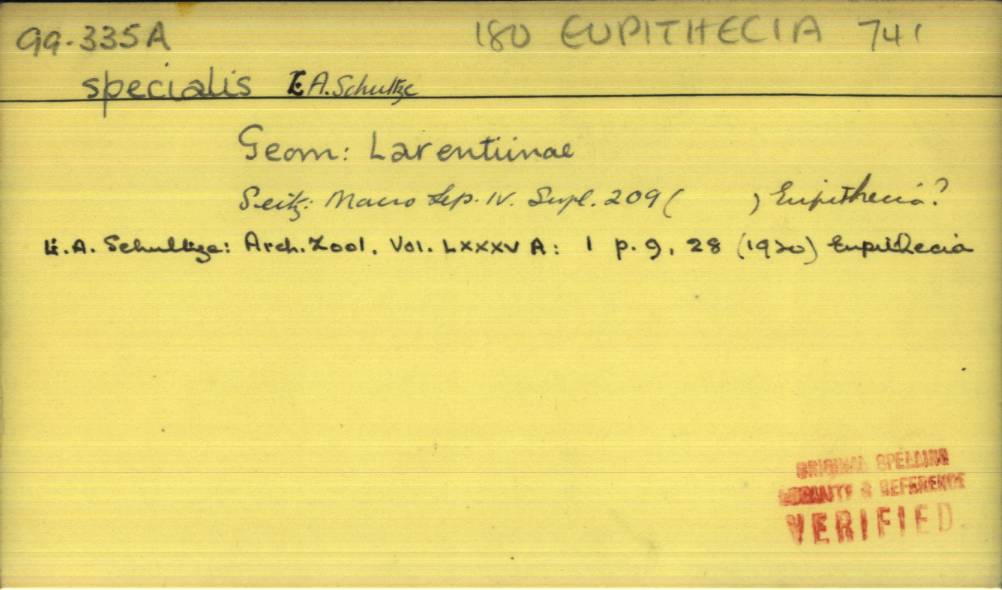 99.335A 180 EUPITHECIA 741
specialis E A. Schultze
Geom: Larentiinae
Seitz: Macro Lep. IV. Supl. 209 ( ) Eupithecia?
A. Schultze: Arch. Zool. Vol. LXXXV A: 1 p. 9, 28 (1920) Eupithecia
ORIGINAL SPELLING
PRIORITY & REFERENCE
VERIFIED